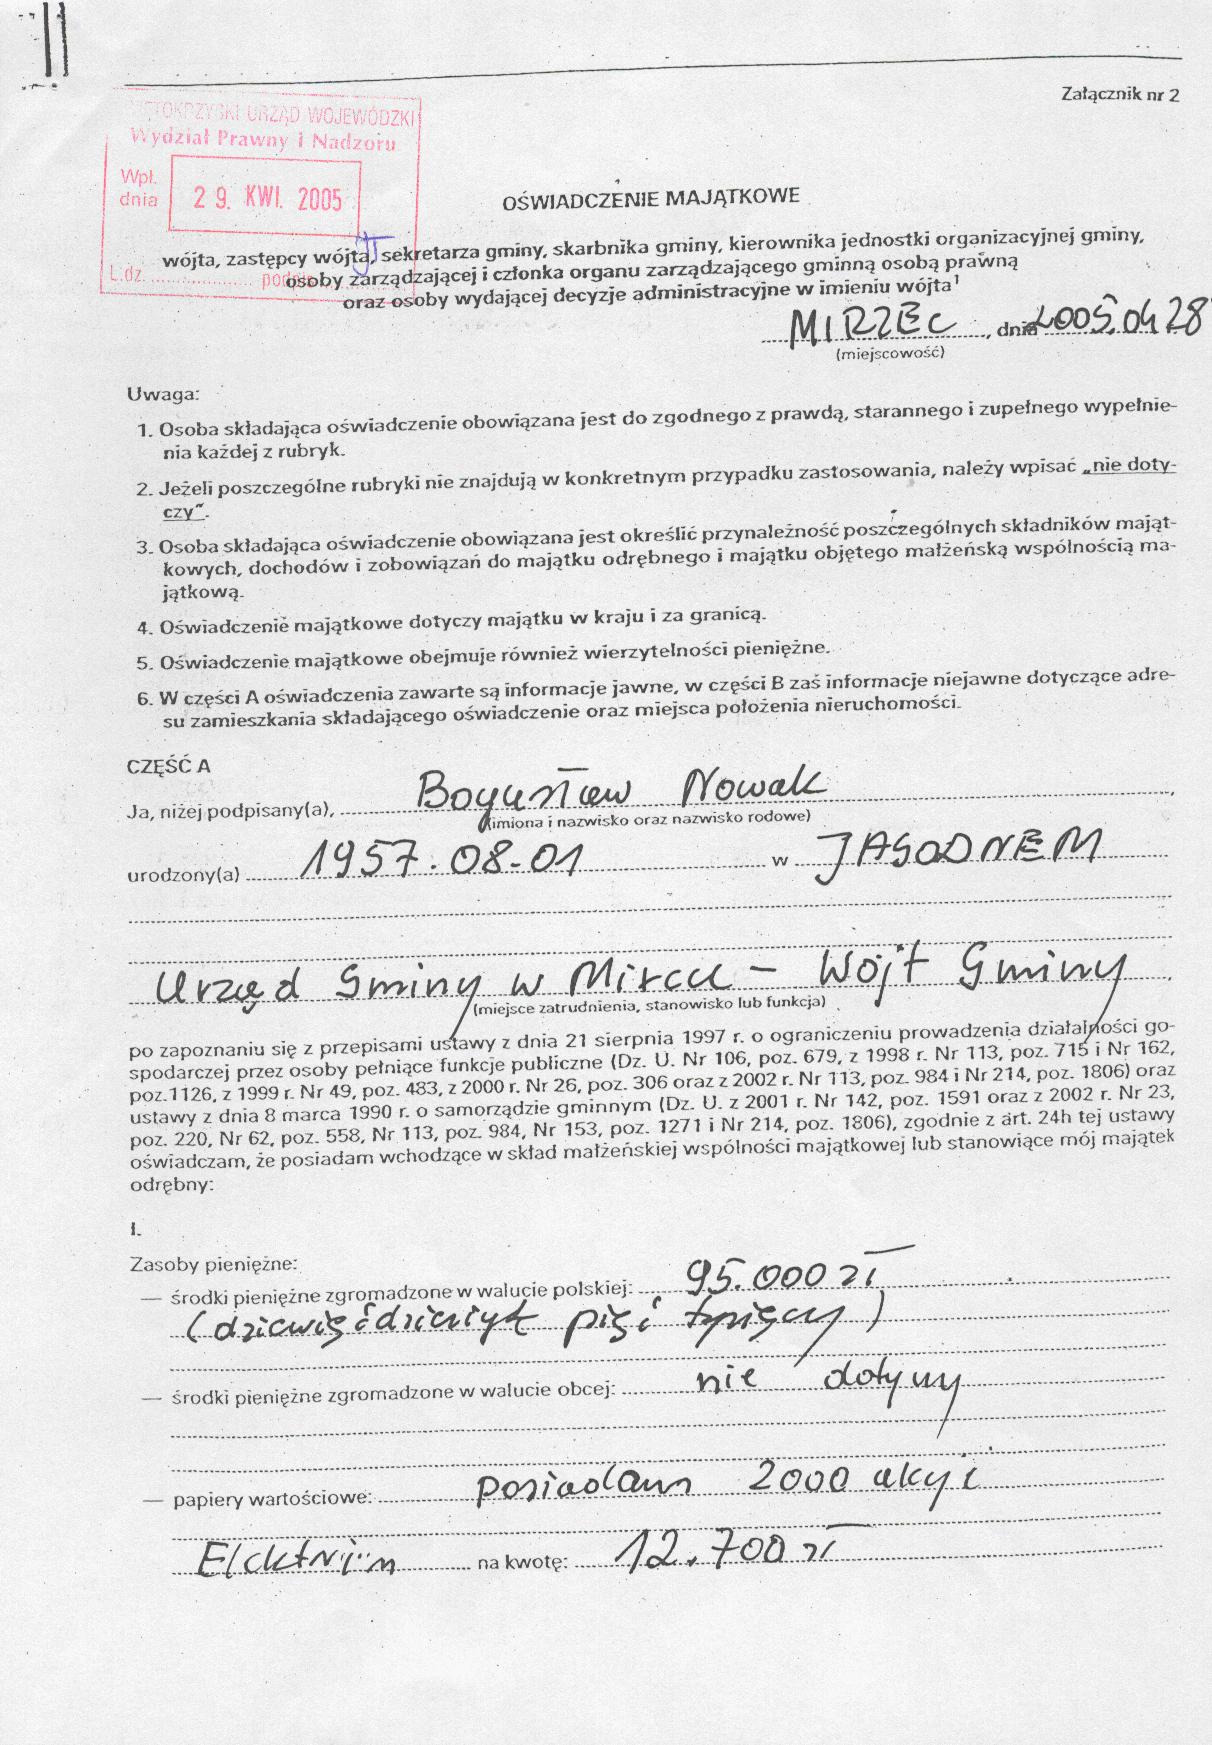 Załącznik nr 2
ŚWIĘTOKRZYSKI URZĄD WOJEWÓDZKI
Wydział Prawny i Nadzoru
Wpł.
dnia 29. KWI. 2005
L.dz. .......... podpis
OŚWIADCZENIE MAJĄTKOWE
wójta, zastępcy wójta, sekretarza gminy, skarbnika gminy, kierownika jednostki organizacyjnej gminy,
osoby zarządzającej i członka organu zarządzającego gminną osobą prawną
oraz osoby wydającej decyzje administracyjne w imieniu wójta¹
MIRZEC, dnia 2005.04.28
(miejscowość)
Uwaga:
1. Osoba składająca oświadczenie obowiązana jest do zgodnego z prawdą, starannego i zupełnego wypełnie-
nia każdej z rubryk.
2. Jeżeli poszczególne rubryki nie znajdują w konkretnym przypadku zastosowania, należy wpisać „nie doty-
czy".
3. Osoba składająca oświadczenie obowiązana jest określić przynależność poszczególnych składników mająt-
kowych, dochodów i zobowiązań do majątku odrębnego i majątku objętego małżeńską wspólnością ma-
jątkową.
4. Oświadczenie majątkowe dotyczy majątku w kraju i za granicą.
5. Oświadczenie majątkowe obejmuje również wierzytelności pieniężne.
6. W części A oświadczenia zawarte są informacje jawne, w części B zaś informacje niejawne dotyczące adre-
su zamieszkania składającego oświadczenie oraz miejsca położenia nieruchomości.
CZĘŚĆ A
Ja, niżej podpisany(a), Bogusław Nowak,
(imiona i nazwisko oraz nazwisko rodowe)
urodzony(a) 1957.08-01 w JAGODNEM
Urząd Gminy w Mircu – Wójt Gminy,
(miejsce zatrudnienia, stanowisko lub funkcja)
po zapoznaniu się z przepisami ustawy z dnia 21 sierpnia 1997 r. o ograniczeniu prowadzenia działalności go-
spodarczej przez osoby pełniące funkcje publiczne (Dz. U. Nr 106, poz. 679, z 1998 r. Nr 113, poz. 715 i Nr 162,
poz.1126, z 1999 r. Nr 49, poz. 483, z 2000 r. Nr 26, poz. 306 oraz z 2002 r. Nr 113, poz. 984 i Nr 214, poz. 1806) oraz
ustawy z dnia 8 marca 1990 r. o samorządzie gminnym (Dz. U. z 2001 r. Nr 142, poz. 1591 oraz z 2002 r. Nr 23,
poz. 220, Nr 62, poz. 558, Nr 113, poz. 984, Nr 153, poz. 1271 i Nr 214, poz. 1806), zgodnie z art. 24h tej ustawy
oświadczam, że posiadam wchodzące w skład małżeńskiej wspólności majątkowej lub stanowiące mój majątek
odrębny:
I.
Zasoby pieniężne:
— środki pieniężne zgromadzone w walucie polskiej: 95.000 zł
(dziewięćdziesiąt pięć tysięcy)
— środki pieniężne zgromadzone w walucie obcej: nie dotyczy
— papiery wartościowe: posiadam 2000 akcji
Elektrim na kwotę: 12.700 zł